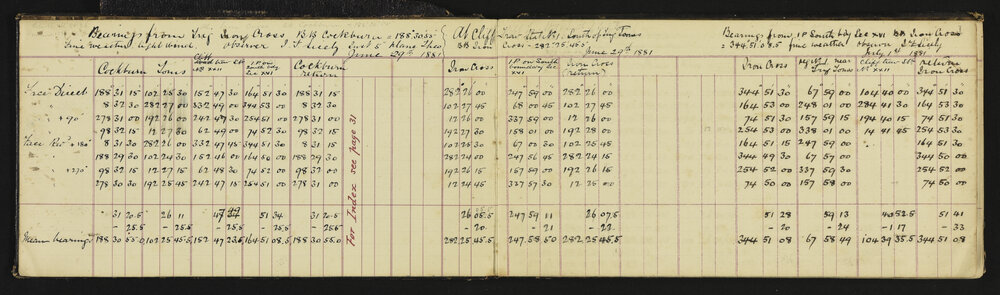 Bearings from Trig Iron Cross BB Cockburn = 188°30'55"
fine weather light wind. observer J. T. Seely inst 5" Alano Theo
June 29th 1881
Cockburn Tonis Cliff near Stn No XXII 1P on South bdy Sec XVI Cockburn return
Face Direct 188 31 15 102 25 30 152 47 30 164 51 30 188 31 15
" 8 32 30 282 27 00 332 49 00 344 53 00 8 32 30
" +90° 278 31 00 192 26 00 242 47 30 254 51 00 278 31 00
" 98 32 15 12 27 30 62 49 00 74 52 30 98 32 15
Face Rev'd +180° 8 31 30 282 26 00 332 47 45 344 51 30 8 31 15
" 188 29 30 102 24 30 152 46 00 164 50 00 188 29 30
" +270° 98 32 15 12 27 15 62 48 30 74 52 00 98 32 00
278 30 30 192 25 45 242 47 15 254 51 00 278 31 00
31 20.5 26 11 47 49 51 34 31 20.5
- 25.5 - 25.5 - 25.5 - 25.5 - 25.5
Mean bearings 188 30 55.0 102 25 45.5 152 47 23.5 164 51 08.5 188 30 55.0
For Index see page 31
At Cliff near Stn No 1. South of
BB Iron Cross - 282°25'45.5"
June 29th 1881
Iron Cross 1P on South boundary Sec XVI Iron Cross (return)
282 26 00 247 59 00 282 26 00
102 27 45 68 00 45 102 27 45
12 26 00 337 59 00 12 26 00
192 27 30 158 01 00 192 28 00
102 25 30 67 00 30 102 25 45
282 24 00 247 56 45 282 24 15
192 26 15 157 59 00 192 26 15
12 24 45 337 57 30 12 25 00
26 05.5 247 59 11 26 07.5
- 20 - 21 - 22
282 25 45.5 247 58 50 282 25 45.5
Bearings from 1P South bdy Sec XVI BB Iron Cross
= 344°51'08.5" fine weather observer J. T. Seely
July 1st 1881
Iron Cross near Trig Tonis Cliff near Stn No XXII return Iron Cross
344 51 30 67 59 00 104 40 00 344 51 30
164 53 00 248 01 00 284 41 30 164 53 30
74 51 30 157 59 15 194 40 15 74 51 30
254 53 00 338 01 00 14 41 45 254 53 30
164 51 15 247 59 00 164 51 30
344 49 30 67 57 00 344 50 00
254 52 00 337 59 30 254 52 00
74 50 00 157 58 00 74 50 00
51 28 59 13 40 52.5 51 41
- 20 - 24 - 1 17 - 33
344 51 08 67 58 49 104 39 35.5 344 51 08